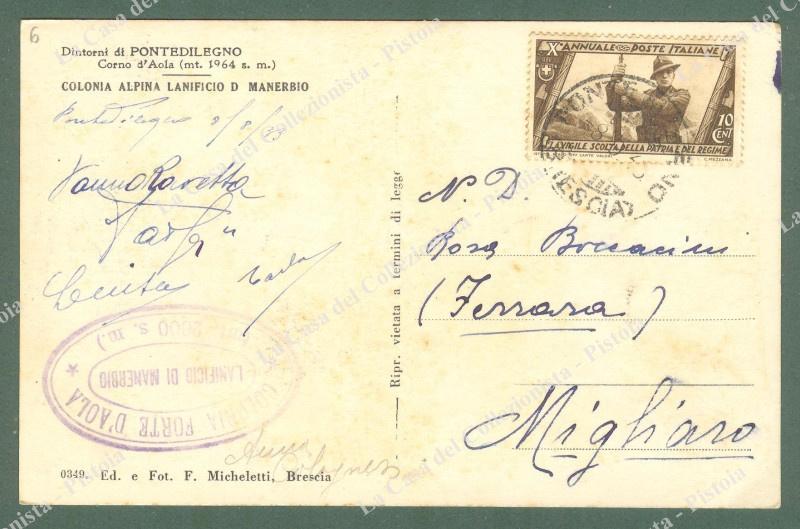 6
Dintorni di PONTEDILEGNO
Corno d'Aola (mt. 1964 s. m.)
COLONIA ALPINA LANIFICIO D MANERBIO
Pontedilegno 8/8/
Vanna Ravetta
Carla
COLONIA FORTE D'AOLA
LANIFICIO DI MANERBIO
2000 s. m.)
0349. Ed. e Fot. F. Micheletti, Brescia
Ripr. vietata a termini di legge
Xº ANNUALE POSTE ITALIANE
10 CENT
LA VIGILE SCOLTA DELLA PATRIA E DEL REGIME
C. MEZZANA
PONTE
(BRESCIA)
N. D.
Rosa Boccacini
(Ferrara)
Migliaro
La Casa del Collezionista - Pistoia